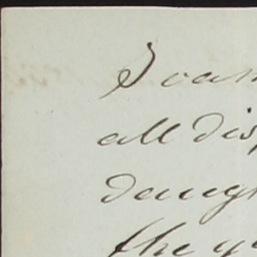 I can
all dis
daugh
the